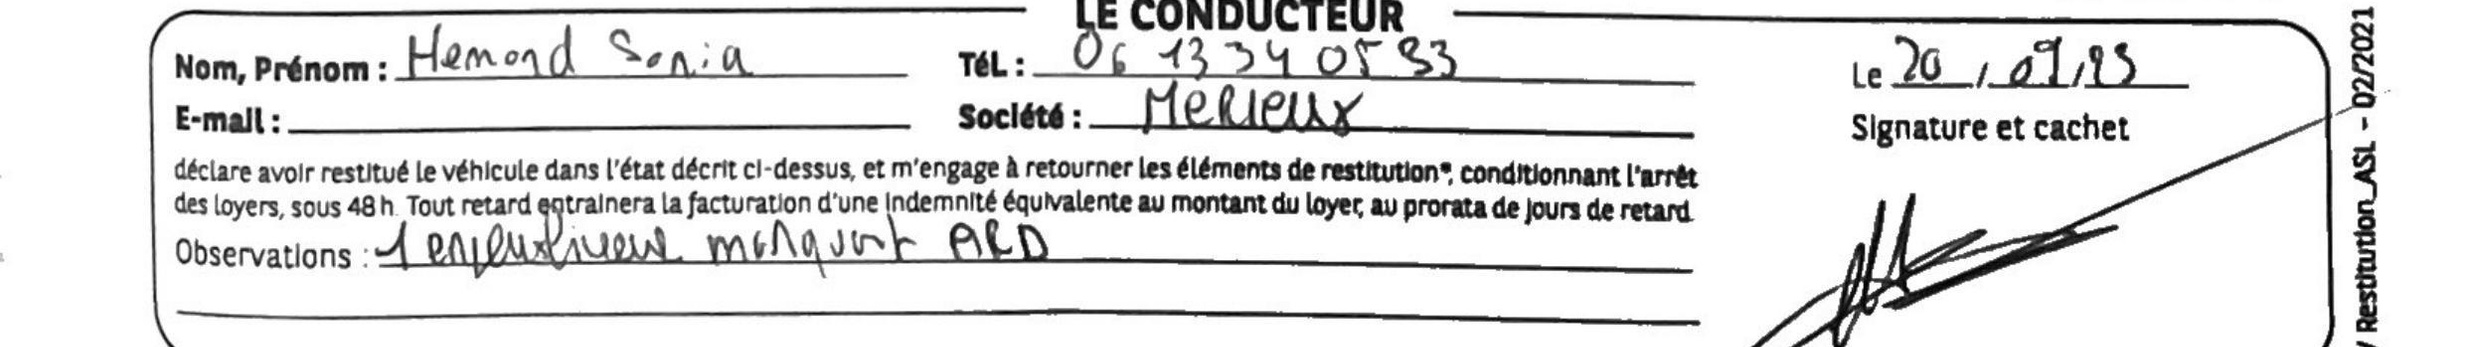 LE CONDUCTEUR
Nom, Prénom : Hemond Sonia
Tél. : 06 13 34 05 83
Le 20 / 09 / 23
E-mail :
Société : Merieux
Signature et cachet
déclare avoir restitué le véhicule dans l'état décrit ci-dessus, et m'engage à retourner les éléments de restitution*, conditionnant l'arrêt
des loyers, sous 48 h. Tout retard entraînera la facturation d'une indemnité équivalente au montant du loyer, au prorata de jours de retard
Observations : 1 enjoliveur manquant ARD
/ Restitution_ASL - 02/2021